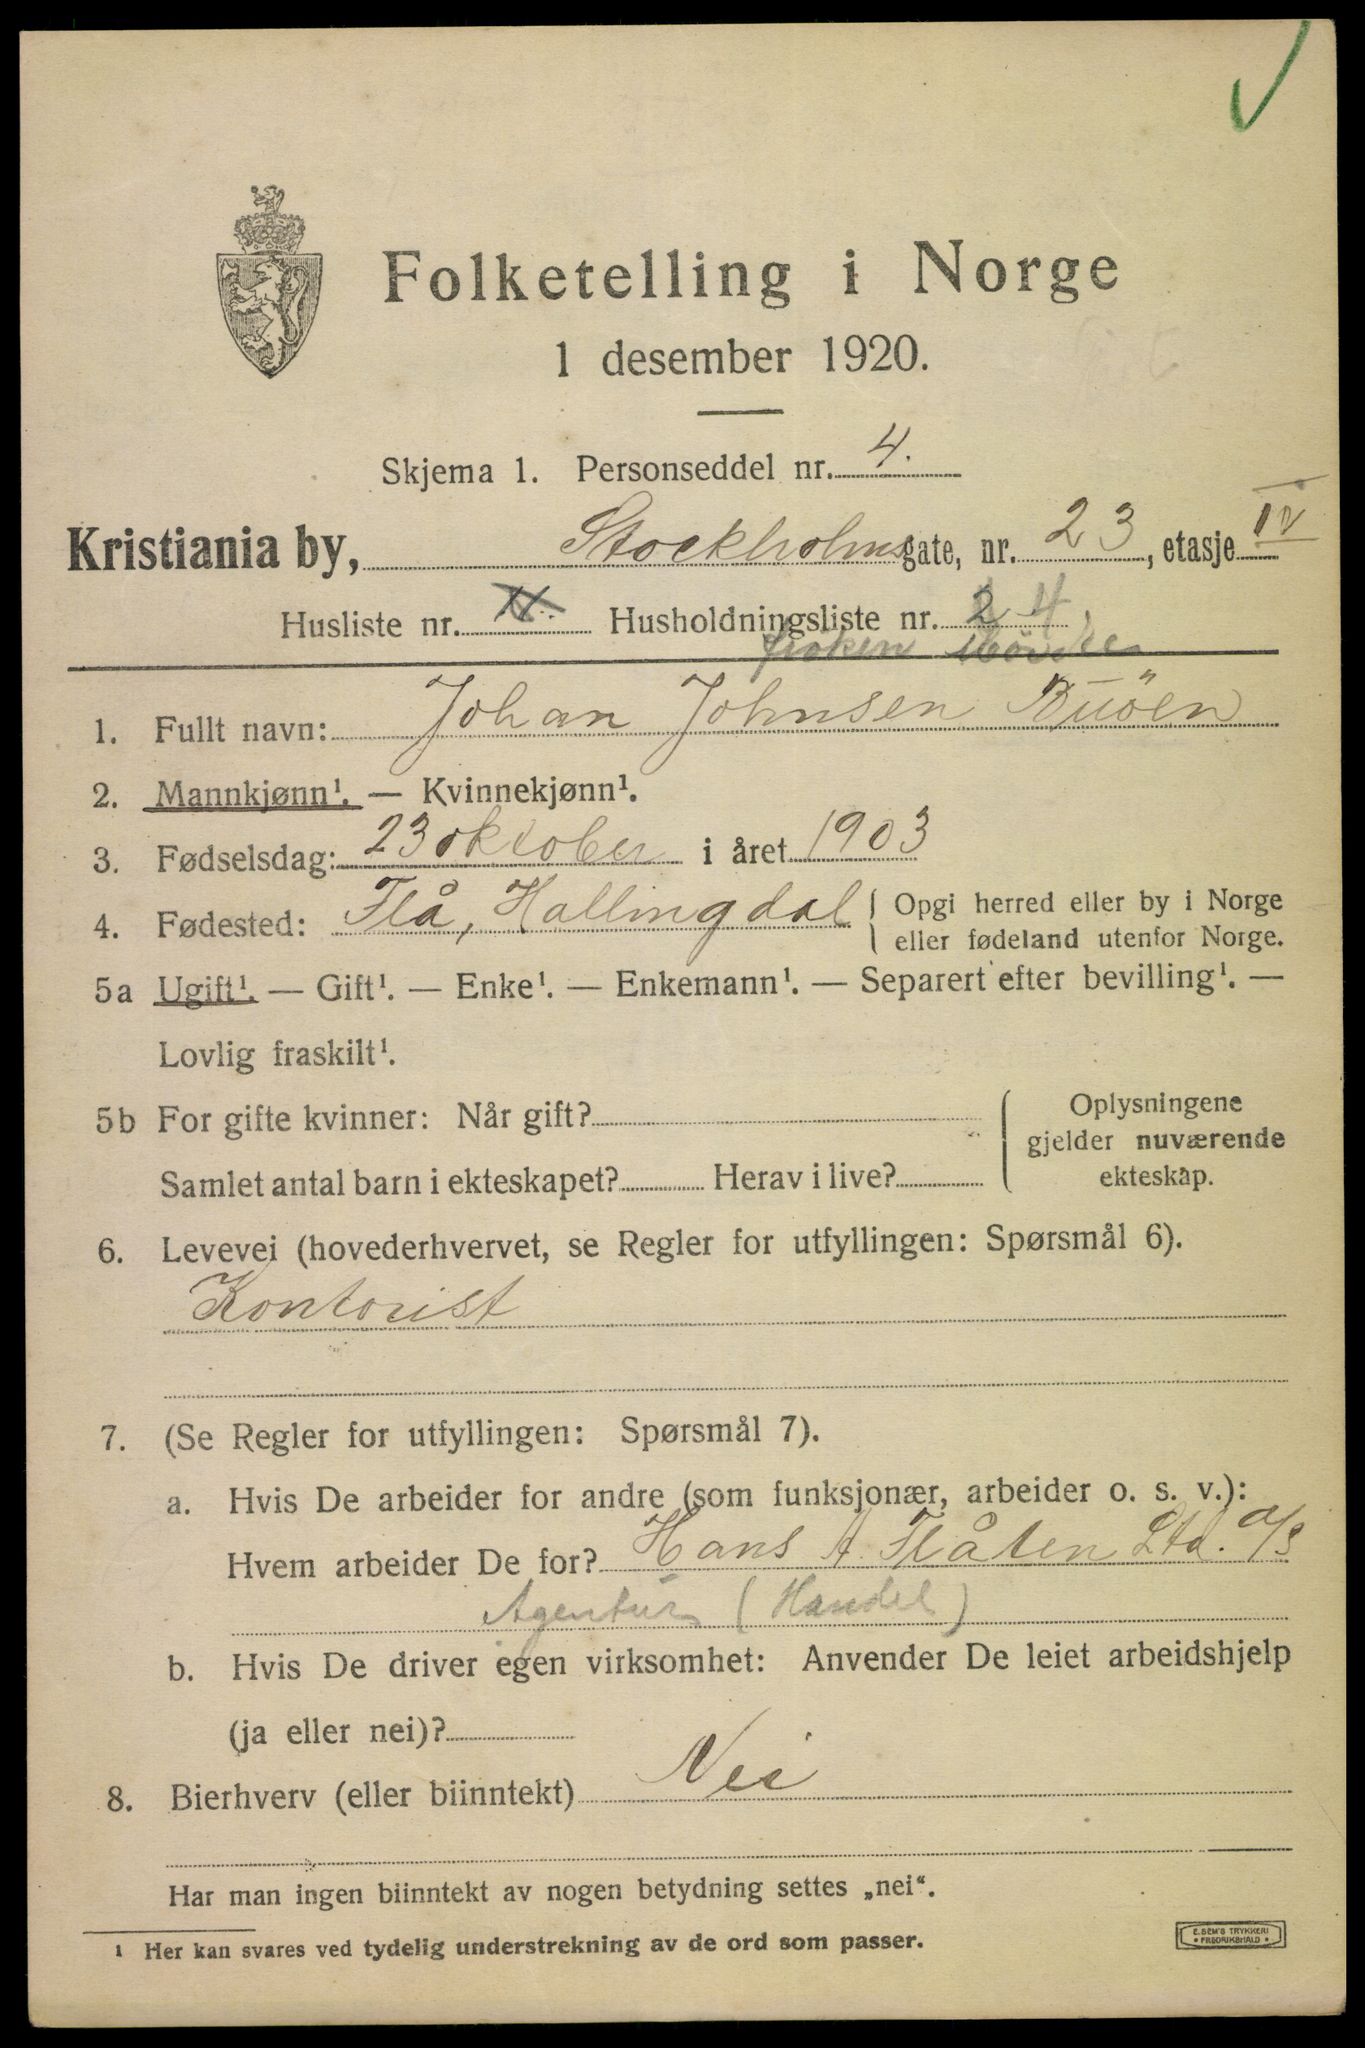 Folketelling i Norge
1 desember 1920.
Skjema 1. Personseddel nr. 4.
Kristiania by, Stockholmsgate, nr. 23, etasje IV
Husliste nr. Husholdningsliste nr. 2 4
frøken
1. Fullt navn: Johan Johnsen Buöen
2. Mannkjønn¹. — Kvinnekjønn¹.
3. Fødselsdag: 23 oktober i året 1903
4. Fødested: Flå, Hallingdal { Opgi herred eller by i Norge
eller fødeland utenfor Norge.
5a Ugift¹. — Gift¹. — Enke¹. — Enkemann¹. — Separert efter bevilling¹. —
Lovlig fraskilt¹.
5b For gifte kvinner: Når gift?
Samlet antal barn i ekteskapet? Herav i live?
Oplysningene
gjelder nuværende
ekteskap.
6. Levevei (hovederhvervet, se Regler for utfyllingen: Spørsmål 6).
Kontorist
7. (Se Regler for utfyllingen: Spørsmål 7).
a. Hvis De arbeider for andre (som funksjonær, arbeider o. s. v.):
Hvem arbeider De for? Hans A. Flåten Ltd. A/S
Agentur (Handel)
b. Hvis De driver egen virksomhet: Anvender De leiet arbeidshjelp
(ja eller nei)?
8. Bierhverv (eller biinntekt) Nei
Har man ingen biinntekt av nogen betydning settes „nei“.
¹ Her kan svares ved tydelig understrekning av de ord som passer.
E. SEM'S TRYKKERI
• FREDRIKSHALD •